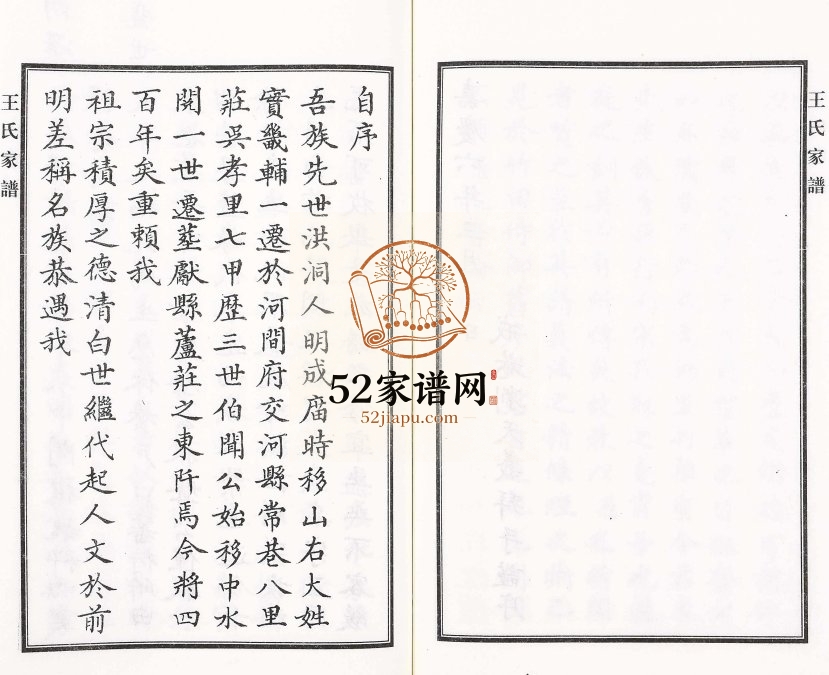 王氏家譜
自序
吾族先世洪洞人明成庙時移山右大姓
實畿輔一遷於河間府交河縣常巷八里
莊吳孝里七甲歷三世伯聞公始移中水
閱一世遷塟獻縣蘆莊之東阡焉今將四
百年矣重賴我
祖宗積厚之德清白世繼代起人文於前
明差稱名族恭遇我
王氏家譜
52家谱网
52jiapu.com